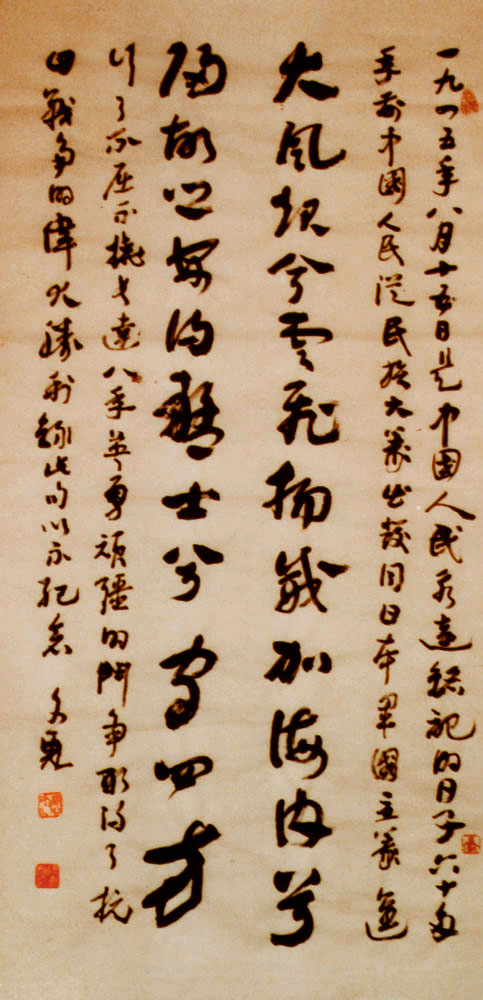 一九四五年八月十五日是中國人民永遠銘記的日子六十多
年前中國人民從民族大義出發同日本軍國主義進
大風起兮雲飛揚威加海内兮
歸故鄉安得猛士兮守四方
行了不屈不撓長達八年英勇頑疆的鬥爭取得了抗
日戰爭的偉大勝利錄此句以示紀念